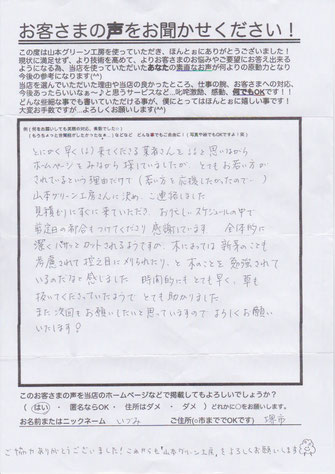 お客さまの声をお聞かせください！
この度は山本グリーン工房を使っていただき、ほんとぉにありがとうございました！
現状に満足せず、より技術を高めて、よりお客さまのお悩みやご要望にお答え出来る
ようになる為、当店を使っていただいたあなたの素直なお声が何よりの原動力となり
今後の参考になります(^^)
当店を選んでいただいた理由や当店の良かったところ、仕事の腕、お客さまへの対応、
今後あったらいいなぁ〜♪と思うサービスなど、叱咤激励、感動、何でもOKです！
どんな些細な事でも書いていただける事が、僕にとってはほんとぉに嬉しい事です！
大変お手数ですが…よろしくお願いします(^^)
とにかく早くに来てくださる業者さんをと思いながら
ホームページをみながら探していましたが、とてもお若い方が
されているという理由だけで（若い方を応援したかったので…）
山本グリーン工房さんに決め、ご連絡しました
見積もりにすぐに来ていただき お忙しいスケジュールの中で
剪定日の都合もつけてくださり感謝しています 全体的に
カットされるようですが、木によっては新芽のことも
考慮されて控え目に刈られたり、と木のことを勉強されて
いるのだなと感じました 時間的にもとても早く、草も
抜いてくださっていたようで とても助かりました
また次回もお願いしたいと思っていますのでよろしくお願い
いたします！
このお客さまの声を当店のホームページなどで掲載してもよろしいでしょうか？
（ はい ・ 匿名ならOK ・ 住所はダメ ・ ダメ ） どれかに○をお願いします。
お名前またはニックネーム いづみ ご住所(○市まででOKです) 堺市
ご協力ありがとうございました！これからも「山本グリーン工房」をよろしくお願いします(^^)